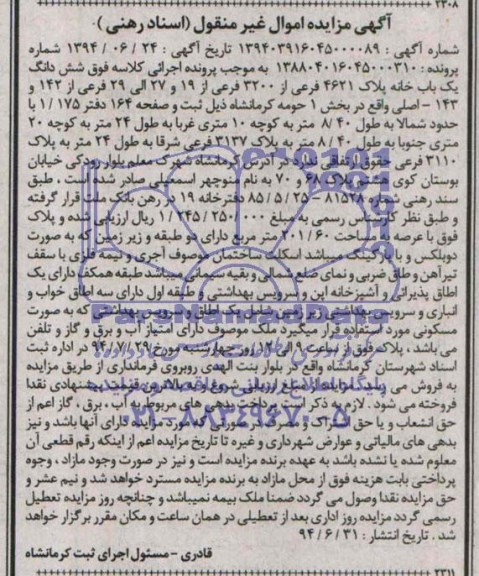 ۲۳۰۸
آگهی مزایده اموال غیر منقول (اسناد رهنی)
شماره آگهی : ۱۳۹۴۰۳۹۱۶۰۴۵۰۰۰۰۸۹ تاریخ آگهی : ۲۴ / ۰۶ / ۱۳۹۴ شماره
پرونده : ۱۳۸۸۰۴۰۱۶۰۴۵۰۰۰۳۱۰ به موجب پرونده اجرائی کلاسه فوق شش دانگ
یک باب خانه پلاک ۴۶۲۱ فرعی از ۳۲۰۰ فرعی از ۱۹ و ۲۷ الی ۲۹ فرعی از ۱۴۲ و
۱۴۳ - اصلی واقع در بخش ۱ حومه کرمانشاه ذیل ثبت و صفحه ۱۶۴ دفتر ۱۷۵ / ۱ با
حدود شمالا به طول ۴۰ /۸ متر به کوچه ۱۰ متری غربا به طول ۲۴ متر به کوچه ۲۰
متری جنوبا به طول ۴۰ /۸ متر به پلاک ۳۱۳۷ فرعی شرقا به طول ۲۴ متر به پلاک
۳۱۱۰ فرعی حقوق ارتفاقی ندارد در آدرس کرمانشاه شهرک معلم بلوار رودکی خیابان
بوستان کوی هشتم پلاک ۶۸ و ۷۰ به نام منوچهر اسمعیلی صادر شده است ، طبق
سند رهنی شماره ۸۱۵۲۸ - ۲۵ / ۵ / ۸۵ دفترخانه ۱۹ در رهن بانک ملت قرار گرفته
و طبق نظر کارشناس رسمی به مبلغ ۰۰۰ /۲۵۰ / ۲۴۵ / ۱ ریال ارزیابی شده و پلاک
فوق با عرصه به مساحت ۶۰ / ۲۰۱ متر مربع دارای دو طبقه و زیر زمین که به صورت
دوبلکس و با پارکینگ میباشد اسکلت ساختمان موصوف آجری و نیمه فلزی با سقف
تیرآهن و طاق ضربی و نمای ضلع شمالی و بقیه سیمانی میباشد طبقه همکف دارای یک
اطاق پذیرائی و آشپزخانه اپن و سرویس بهداشتی و طبقه اول دارای سه اطاق خواب و
انباری و سرویس بهداشتی زیر زمین شامل یک اطاق و سرویس بهداشتی که به صورت
مسکونی مورد استفاده قرار میگیرد ملک موصوف دارای امتیاز آب و برق و گاز و تلفن
می باشد ، پلاک فوق از ساعت ۹ الی ۱۲ روز چهارشنبه مورخ ۲۹ /۷ /۹۴ در اداره ثبت
اسناد شهرستان کرمانشاه واقع در بلوار بنت الهدی روبروی فرمانداری از طریق مزایده
به فروش می رسد مزایده از مبلغ ارزیابی شروع و به بالاترین قیمت پیشنهادی نقدا
فروخته می شود . لازم به ذکر است پرداخت بدهی های مربوط به آب ، برق ، گاز اعم از
حق انشعاب و یا حق اشتراک و مصرف در صورتی که مورد مزایده دارای آنها باشد و نیز
بدهی های مالیاتی و عوارض شهرداری و غیره تا تاریخ مزایده اعم از اینکه رقم قطعی آن
معلوم شده یا نشده باشد به عهده برنده مزایده است و نیز در صورت وجود مازاد ، وجوه
پرداختی بابت هزینه فوق از محل مازاد به برنده مزایده مسترد خواهد شد و نیم عشر و
حق مزایده نقدا وصول می گردد ضمنا ملک بیمه نمیباشد و چنانچه روز مزایده تعطیل
رسمی گردد مزایده روز اداری بعد از تعطیلی در همان ساعت و مکان مقرر برگزار خواهد
شد . تاریخ انتشار : ۳۱ / ۶ / ۹۴
قادری - مسئول اجرای ثبت کرمانشاه
۲۳۱۱
۰۲۱-۸۸۳۴۹۶۷۰-۵